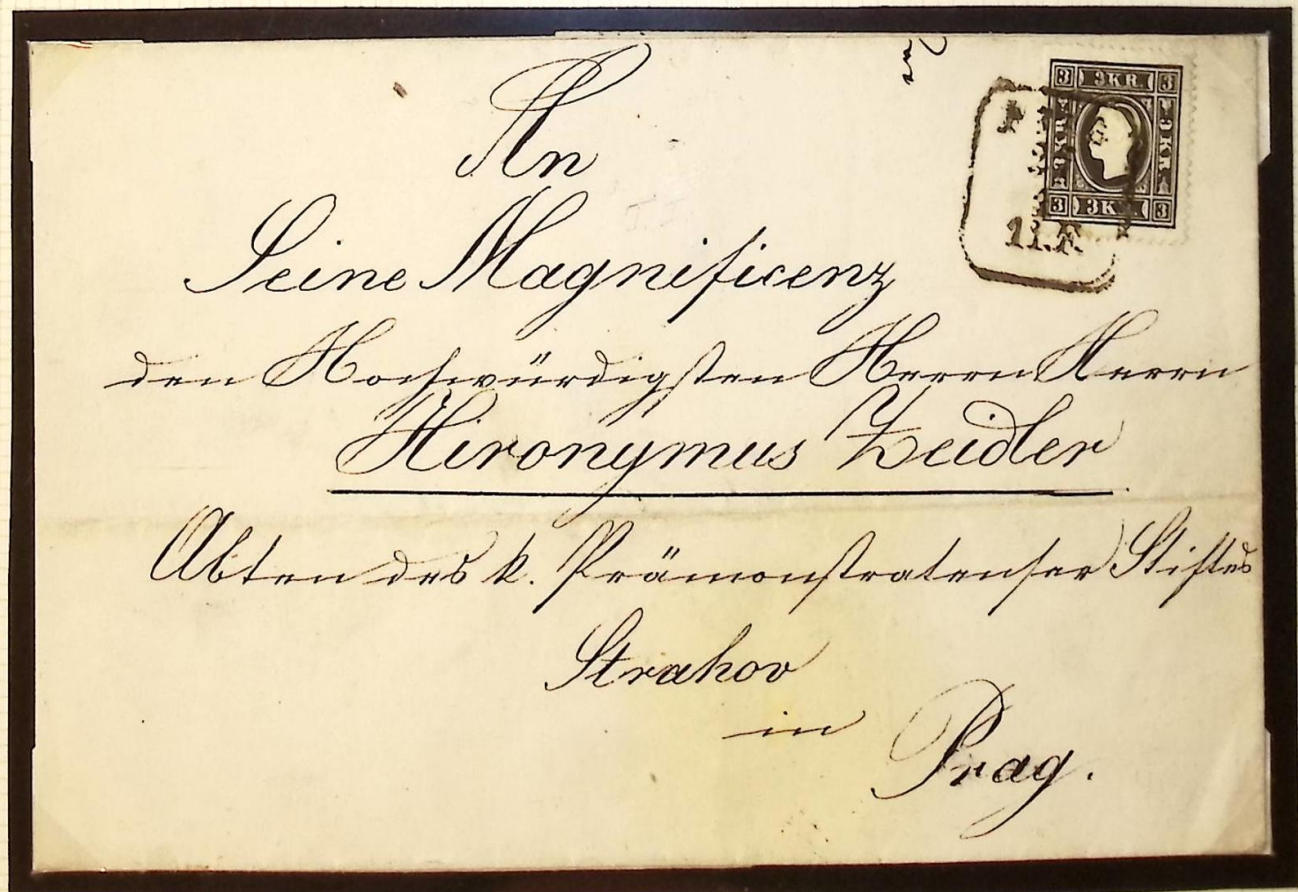 An
Seine Magnificenz
den Hochwürdigsten Herrn Herrn
Hironymus Zeidler
Abten des k. Prämonstratenser Stiftes
Strahov
in
Prag.
3 3 KR. 3
3 KR. 3 KR.
3 3 KR. 3
11. F.